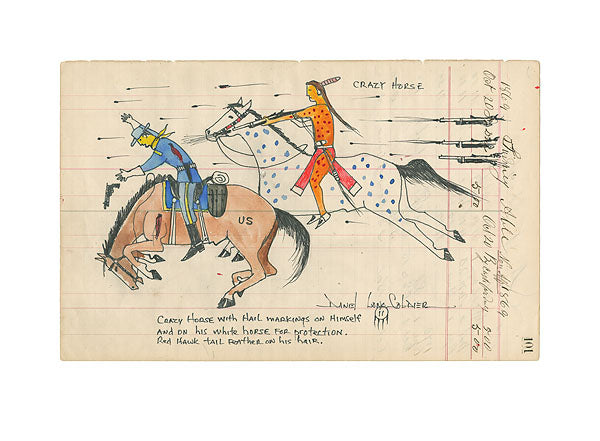 CRAZY HORSE
US
DANIEL LONG SOLDIER
11
CRAZY HORSE WITH HAIL MARKINGS ON HIMSELF
AND ON HIS WHITE HORSE FOR PROTECTION.
RED HAWK TAIL FEATHER ON HIS HAIR.
1869
Oct 20
5.00
Oct 20
9.00
5.00
101